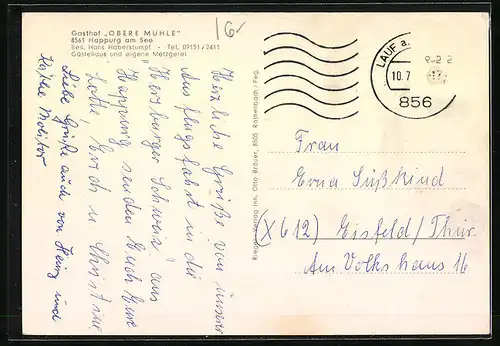 Gasthof „OBERE MÜHLE"
8561 Happurg am See
Bes. Hans Haberstumpf - Tel. 09151/2411
Gästehaus und eigene Metzgerei
16-
LAUF a.
10.7
856
Herzliche Grüße von unserer
Ausflugsfahrt in die
"Hersbrucker Schweiz" aus
Happurg senden Euch Eure
Lotte Erich u Christine
Liebe Grüße auch von Heinz und
Käthe
Riegel Verlag Inh. Otto Bräuer, 8505 Röthenbach / Peg.
Frau
Erna Süßkind
(X612) Eisfeld/Thür.
Am Volkshaus 16